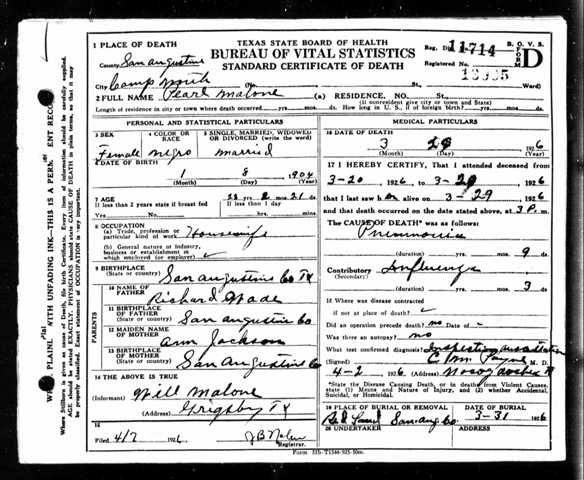 TEXAS STATE BOARD OF HEALTH
BUREAU OF VITAL STATISTICS
STANDARD CERTIFICATE OF DEATH
Reg. Dis. 11-714 B. O. V. S. FORM D
Registered No.
1 PLACE OF DEATH
County San Augustine
City Camp Worth (No. St., Ward)
2 FULL NAME Pearl Malone (a) RESIDENCE. NO. St.,
(If nonresident give city or town and State)
Length of residence in city or town where death occurred yrs. mos. ds. How long in U. S., if of foreign birth? yrs. mos. ds.
PERSONAL AND STATISTICAL PARTICULARS
3 SEX
Female
4 COLOR OR RACE
negro
5 SINGLE, MARRIED, WIDOWED OR DIVORCED (write the word)
married
6 DATE OF BIRTH
1 8 1904
(Month) (Day) (Year)
7 AGE
22 yrs. 2 mos. 21 ds.
If less than 2 years state if breast fed If less than 1 day
Yes No hrs. mins.
8 OCCUPATION
(a) Trade, profession or particular kind of work Housewife
(b) General nature of Industry, business or establishment in which employed (or employer)
9 BIRTHPLACE
(State or country) San Augustine Co TX
PARENTS
10 NAME OF FATHER Richard Wade
11 BIRTHPLACE OF FATHER
(State or country) San Augustine Co
12 MAIDEN NAME OF MOTHER Ann Jackson
13 BIRTHPLACE OF MOTHER
(State or country) San Augustine Co
14 THE ABOVE IS TRUE
(Informant) Will Malone
(Address) Grigsby TX
15
Filed 4/7 1926 Registrar.
MEDICAL PARTICULARS
16 DATE OF DEATH
3 29 1926
(Month) (Day) (Year)
17 I HEREBY CERTIFY, That I attended deceased from
3-20, 1926, to 3-29, 1926
that I last saw her alive on 3-29 1926
and that death occurred on the date stated above, at 3 P. m.
The CAUSE OF DEATH* was as follows:
Pneumonia
(duration) yrs. mos. 9 ds.
Contributory Influenza
(Secondary)
(duration) yrs. mos. 3 ds.
18 Where was disease contracted
if not at place of death?
Did an operation precede death? no Date of -
Was there an autopsy? no
What test confirmed diagnosis?
(Signed) M. D.
4-2, 1926 (Address)
*State the Disease Causing Death, or in deaths from Violent Causes, state (1) Means and Nature of Injury, and (2) whether Accidental, Suicidal, or Homicidal.
19 PLACE OF BURIAL OR REMOVAL
San Aug Co
DATE OF BURIAL
3-31 1926
20 UNDERTAKER (Address)